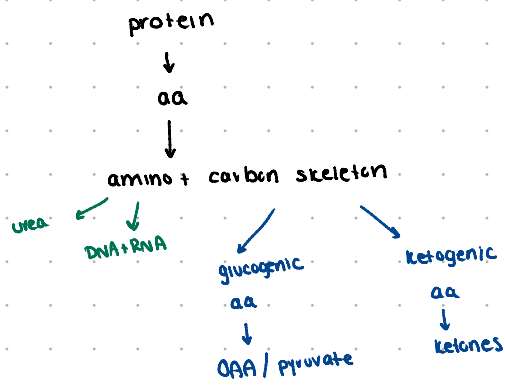 protein
aa
amino + carbon skeleton
urea
DNA + RNA
glucogenic
aa
OAA / pyruvate
ketogenic
aa
ketones